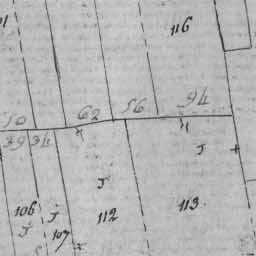 116
50 62 56 94
39 34
J
J
106 J 112 113
J 107